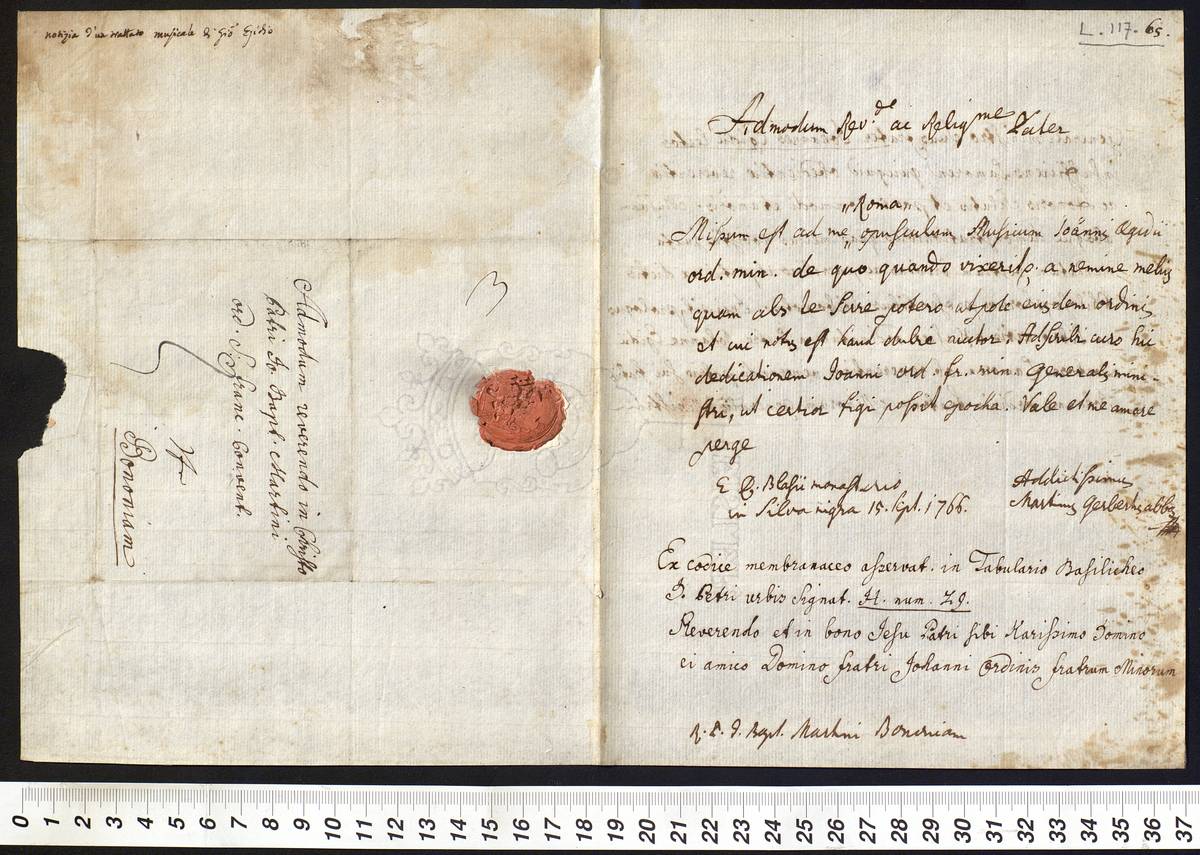 notizia d'un trattato musicale di Gio Egidio
L. 117. 65.
Admodum Rev.de ac Religme Pater
Roma
Missum est ad me opusculum Musicum Joannis Ægidii
ord. min. de quo quando vixerit, a nemine melius
quam abs te scire potero utpote eiusdem ordinis
et cui notus est haud dubie auctor. Adscribi curo hic
dedicationem Joanni ord fr. min generalis mini-
stri, ut certior figi possit epocha. Vale et me amare
perge
E S. Blasii monasterio
in Silva nigra 15. Sept. 1766.
Addictissimus
Martinus Gerbertus abbas
Ex codice membranaceo asservat. in Tabulario Basilicheo
S. Petri urbis signat. H. num. 29.
Reverendo et in bono Jesu Patri sibi Karissimo Domino
ei amico Domino fratri Johanni Ordinis fratrum Minorum
R. P. J. Bapt. Martini Bononiam
3
Admodum reverendo in Christo
Patri Jo Bapt. Martini
ord. S. Franc. Convent.
Bononiam
0 1 2 3 4 5 6 7 8 9 10 11 12 13 14 15 16 17 18 19 20 21 22 23 24 25 26 27 28 29 30 31 32 33 34 35 36 37